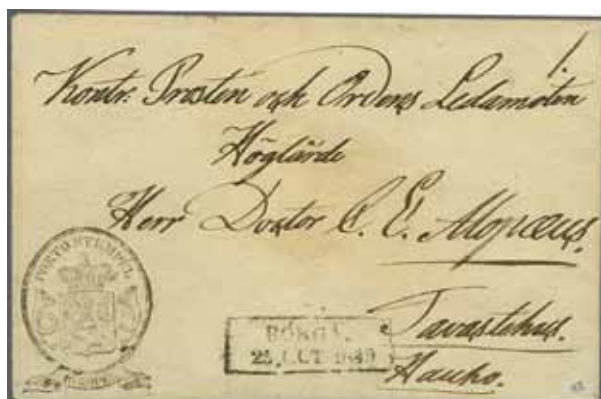 1.
Kontr: Prosten och Ordens Ledamoten
Höglärde
Herr Doctor C. E. Mopæus.
Tavastehus.
Hauho.
PORTO STEMPEL
BORGÅ.
25 OCT 1849